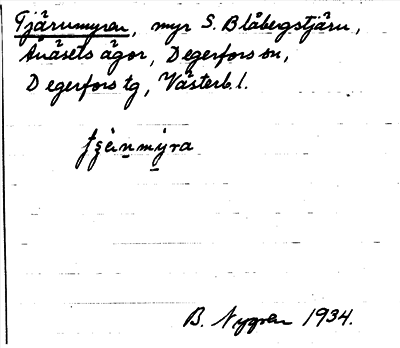 Tjärnmyren, myr S. Blåbergstjärn,
Anäsets ägor, Degerfors sn,
Degerfors tg, Västerb. l.
B. Nygren 1934.